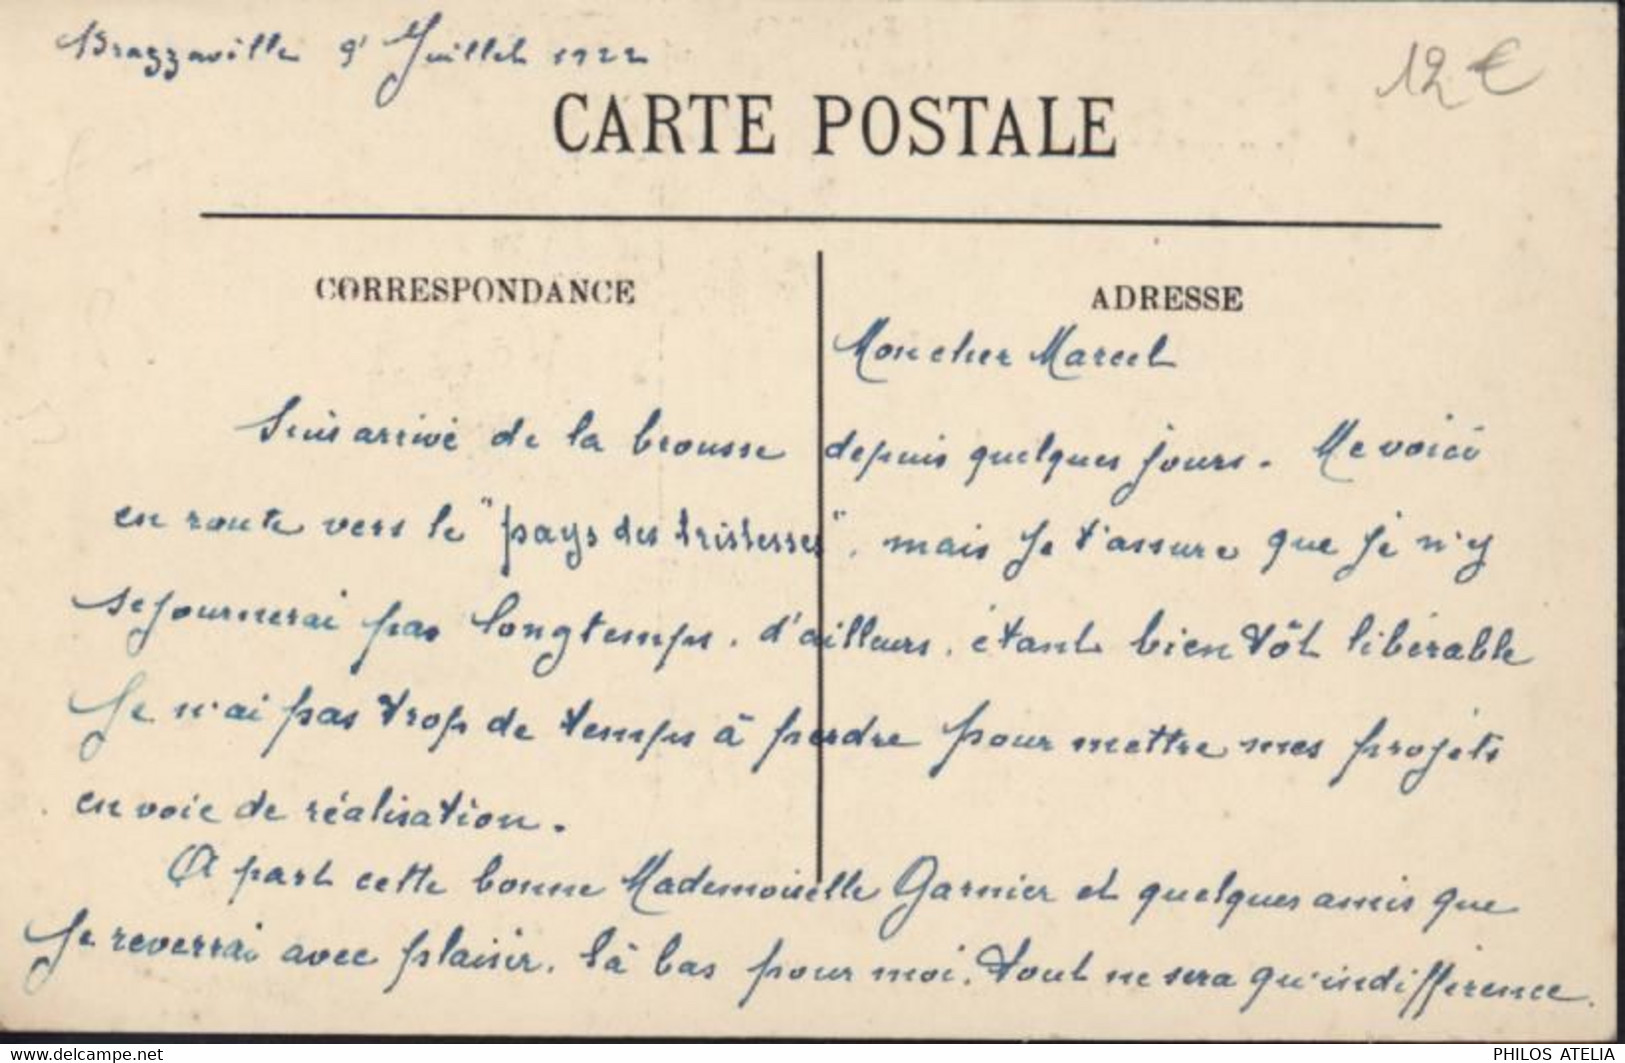 Brazzaville 9 Juillet 1922
12 €
CARTE POSTALE
CORRESPONDANCE
ADRESSE
Mon cher Marcel
Suis arrivé de la brousse depuis quelques jours. Me voici
en route vers le "pays des tristesses", mais je t'assure que je n'y
sejournerai pas longtemps. d'ailleurs, étant bientôt libérable
Je n'ai pas trop de temps à perdre pour mettre mes projets
en voie de réalisation.
A part cette bonne Mademoiselle Garnier et quelques amis que
Je reverrai avec plaisir, là bas pour moi, tout ne sera qu'indifférence.
delcampe.net
PHILOS ATELIA